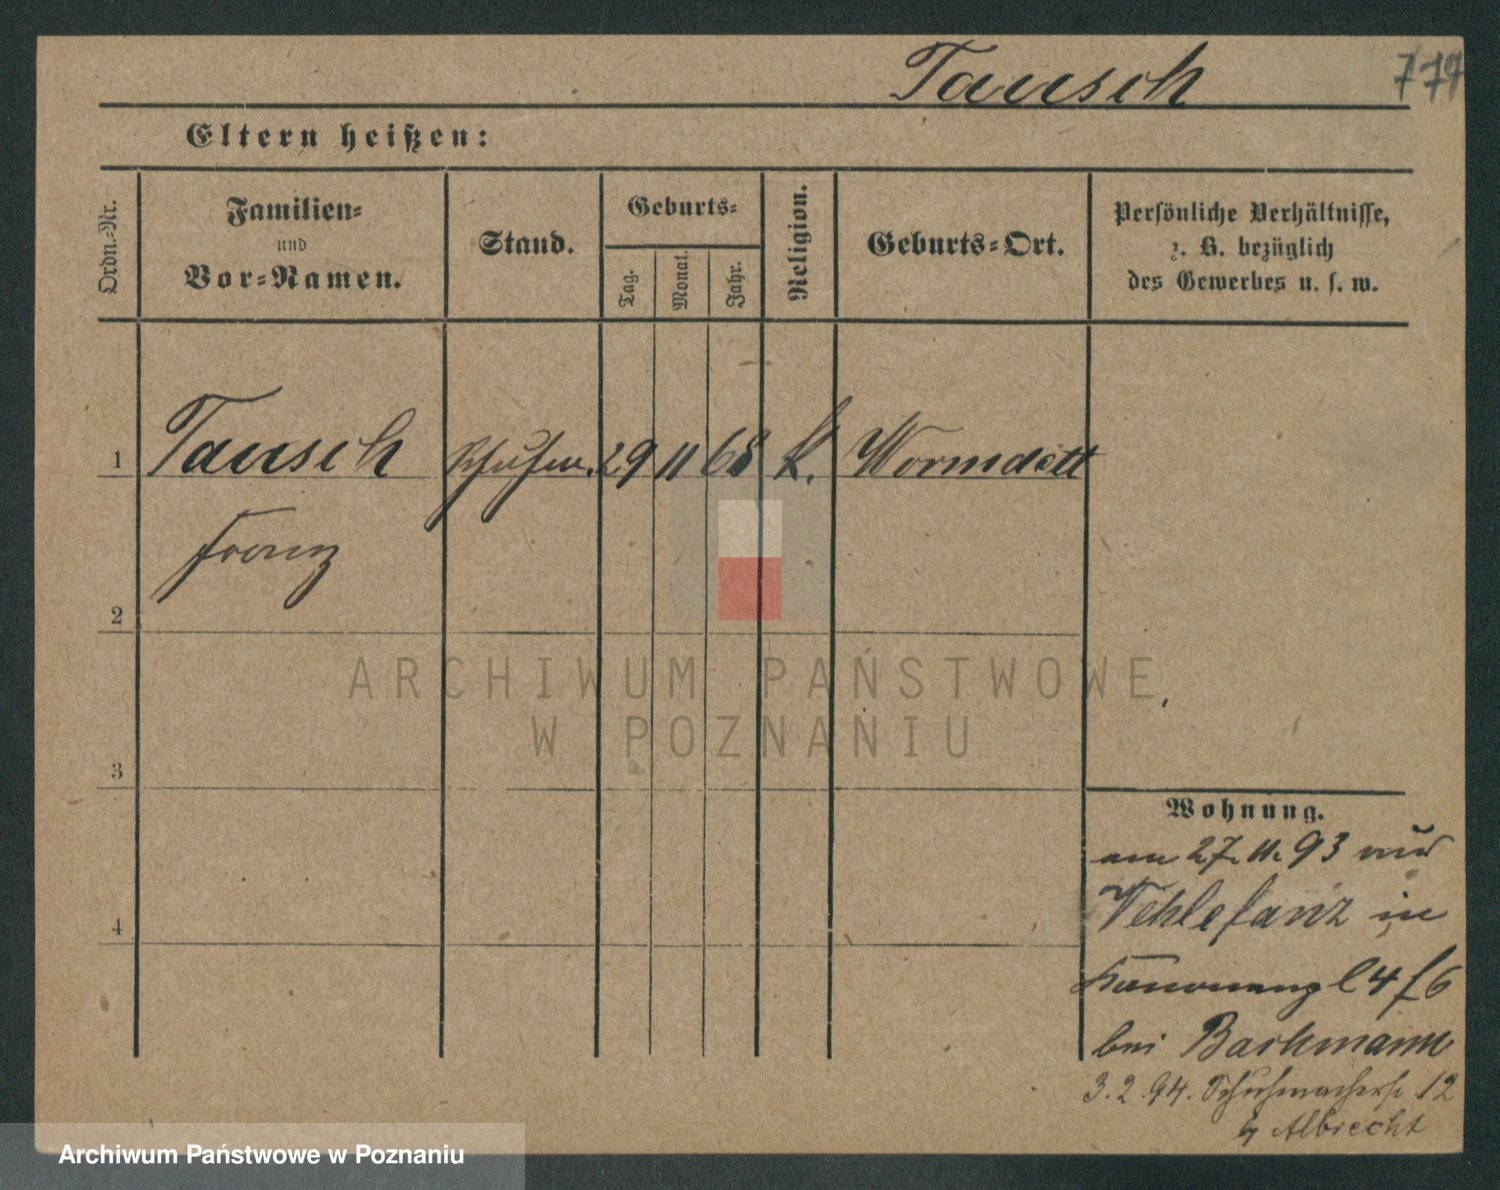 Tausch
Eltern heißen:
Ordn.-Nr.
Familien-
und
Vor-Namen.
Stand.
Geburts-
Tag.
Monat.
Jahr.
Religion.
Geburts-Ort.
Persönliche Verhältnisse,
z. B. bezüglich
des Gewerbes u. s. w.
1 Tausch 29 11 68 k. Wormditt
Franz
2
3
4
Wohnung.
am 27. 11. 93 aus
Vehlefanz in
l 4 f 6
bei Bachmann
3. 2. 94. Schuhmacherstr 12
b Albrecht
ARCHIWUM PAŃSTWOWE
W POZNANIU
Archiwum Państwowe w Poznaniu